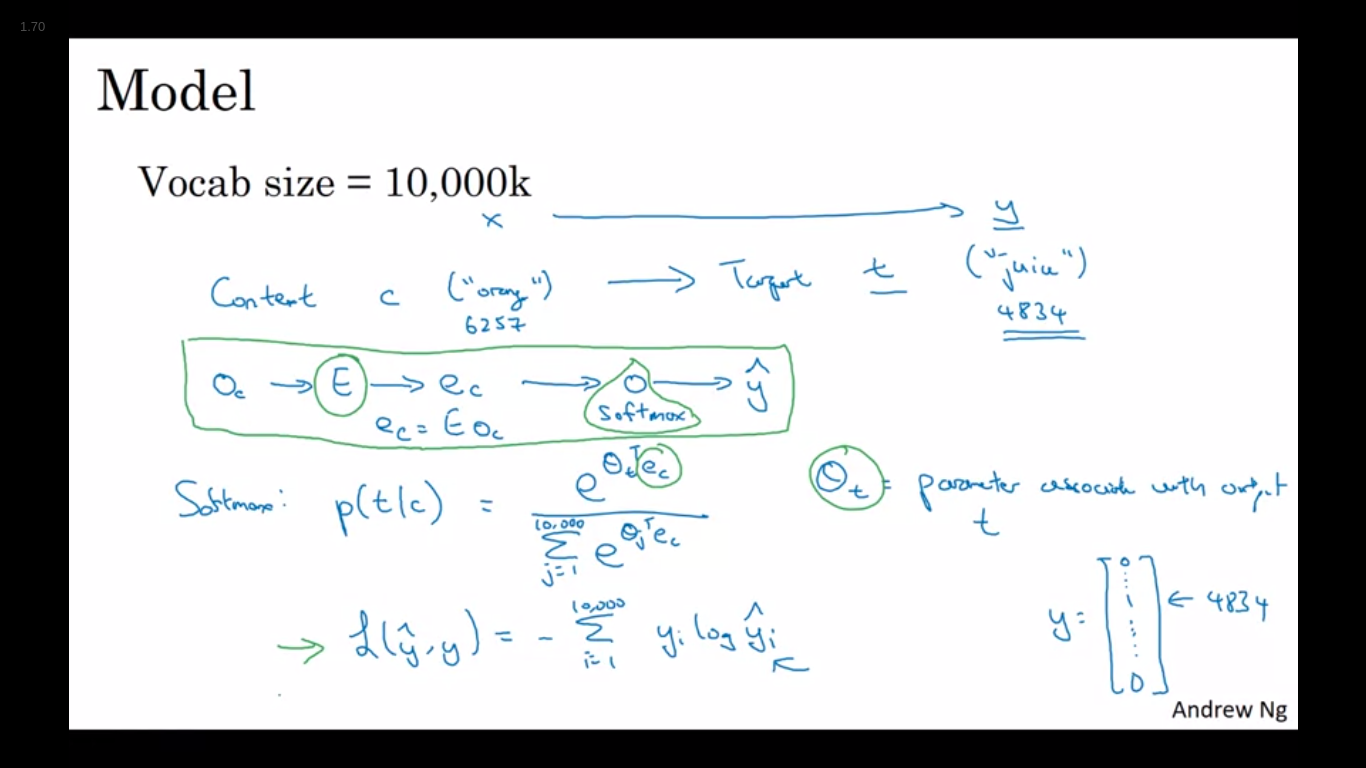 1.70
Model
Vocab size = 10,000k
x → y
Content c ("orang") → Target t ("juice")
6257 4834
O_c → E → e_c → O → ŷ
softmax
e_c = E O_c
Softmax: p(t|c) = e^{θ_t^T e_c} / Σ_{j=1}^{10,000} e^{θ_j^T e_c}
θ_t = parameter associated with output
t
y = [0 ⋮ 1 ⋮ 0] ← 4834
→ ℒ(ŷ, y) = - Σ_{i=1}^{10,000} y_i log ŷ_i
Andrew Ng